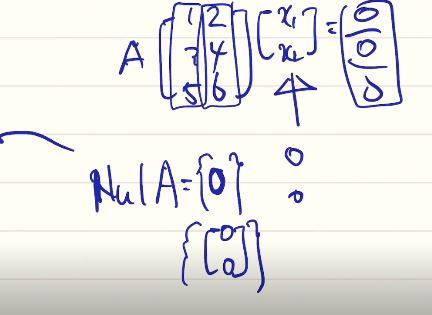 A [1 2 3 4 5 6] [x₁ x₂] = [0 0 0]
0
0
Nul A = {0}
{[0 0]}